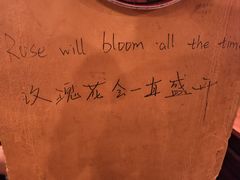 Rose will bloom all the time
玫瑰花会一直盛开